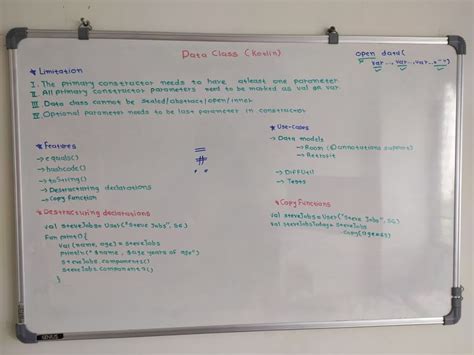 Data Class (Kotlin)
open data(
var..., var..., var... = "")
* Limitation
I. The primary constructor needs to have atleast one parameter
II. All primary constructor parameters need to be marked as val or var
III. Data class cannot be sealed/abstract/open/inner
IV. Optional parameter needs to be last parameter in constructor
* Features
→ equals()
→ hashcode()
→ toString()
→ Destructuring declarations
→ Copy Function
* Use-Cases
→ Data models
→ Room (@annotations support)
→ Retrofit
→ DiffUtil
→ Tests
* Destructuring declarations
val steveJobs = User("Steve Jobs", 56)
Fun print(){
val (name, age) = steveJobs
println("$name, $age years of age")
steveJobs.component1()
steveJobs.component2()
}
* Copy Functions
val steveJobs = User("Steve Jobs", 56)
val steveJobsToday = steveJobs
.Copy(age=